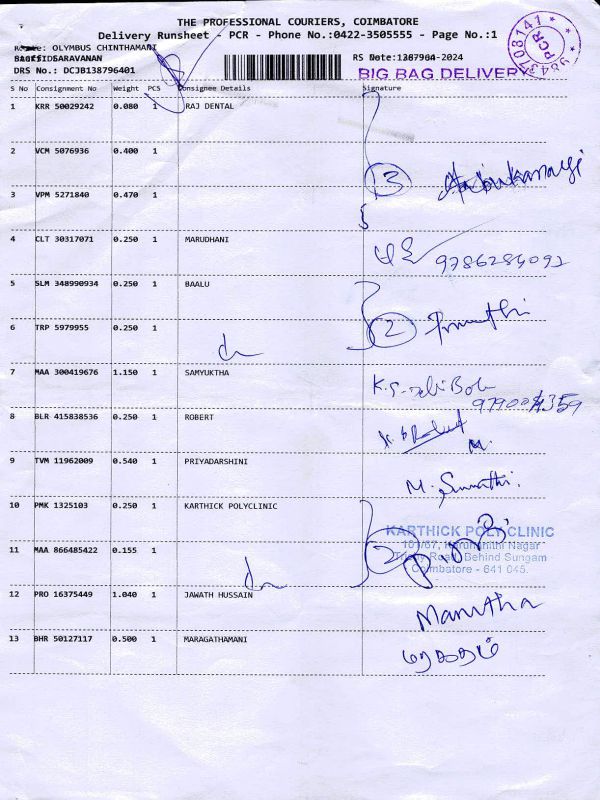 THE PROFESSIONAL COURIERS, COIMBATORE
Delivery Runsheet - PCR - Phone No.:0422-3505555 - Page No.:1
Route: OLYMBUS CHINTHAMANI
SARAVANAN
RS Date: -04-2024
DRS No.: DCJB138796401
BIG BAG DELIVERY
PCR
S No Consignment No Weight PCS Consignee Details Signature
1 KRR 50029242 0.080 1 RAJ DENTAL
2 VCM 5076936 0.400 1
13
3 VPM 5271840 0.470 1
4 CLT 30317071 0.250 1 MARUDHANI
9786284092
5 SLM 348990934 0.250 1 BAALU
6 TRP 5979955 0.250 1
2
7 MAA 300419676 1.150 1 SAMYUKTHA
8 BLR 415838536 0.250 1 ROBERT
9 TVM 11962009 0.540 1 PRIYADARSHINI
M. Sumathi.
10 PMK 1325103 0.250 1 KARTHICK POLYCLINIC
KARTHICK POLY CLINIC
Karunanithi Nagar
11 MAA 866485422 0.155 1
2
Road, Behind Sungam
Coimbatore - 641 045.
12 PRO 16375449 1.040 1 JAWATH HUSSAIN
13 BHR 50127117 0.500 1 MARAGATHAMANI